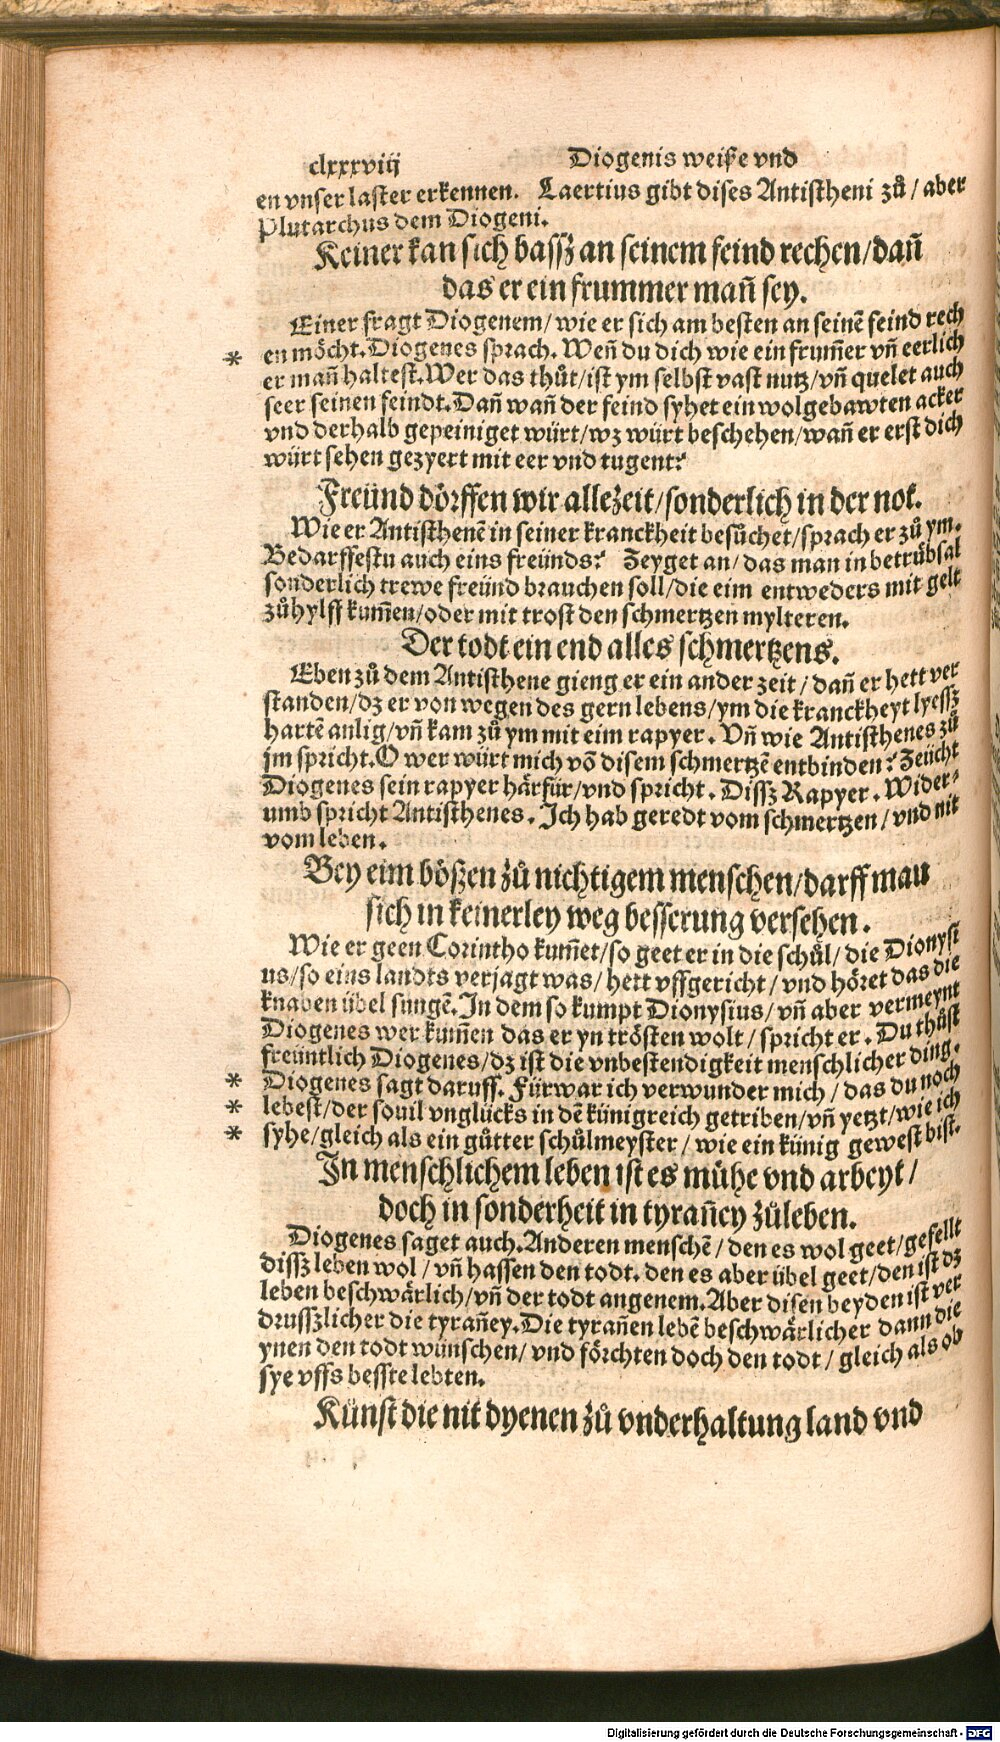 clxxxviij Diogenis weiße vnd
en vnser laster erkennen. Laertius gibt dises Antistheni zů / aber
Plutarchus dem Diogeni.
Keiner kan sich bassz an seinem feind rechen/dañ
das er ein frummer mañ sey.
Einer fragt Diogenem/ wie er sich am besten an seinẽ feind rech
* en möcht. Diogenes sprach. Weñ du dich wie ein frum̃er vñ eerlich
er mañ haltest. Wer das thůt/ist ym selbst vast nutz/vñ quelet auch
seer seinen feindt. Dañ wañ der feind syhet ein wolgebawten acker
vnd derhalb gepeiniget würt/wz würt beschehen/wañ er erst dich
würt sehen gezyert mit eer vnd tugent?
Freünd dörffen wir allezeit/sonderlich in der not.
Wie er Antisthenẽ in seiner kranckheit besůchet/sprach er zů ym.
Bedarffestu auch eins freünds? Zeyget an/ das man in betrůbsal
sonderlich trewe freünd brauchen soll/die eim entweders mit gelt
zůhylff kum̃en/oder mit trost den schmertzen mylteren.
Der todt ein end alles schmertzens.
Eben zů dem Antisthene gieng er ein ander zeit/ dañ er hett ver
standen/dz er von wegen des gern lebens/ym die kranckheyt lyessz
hartẽ anlig/vñ kam zů ym mit eim rapyer. Vñ wie Antisthenes zů
jm spricht. O wer würt mich võ disem schmertzẽ entbinden? Zeücht
Diogenes sein rapyer härfür/vnd spricht. Dissz Rapyer. Wider⸗
umb spricht Antisthenes. Ich hab geredt vom schmertzen/ vnd nit
vom leben.
Bey eim bößen zů nichtigem menschen/darff man
sich in keinerley weg besserung versehen.
Wie er geen Corintho kum̃et/so geet er in die schůl/ die Dionysi
us/so eins landts verjagt was/ hett vffgericht/ vnd höret das die
knaben übel sungẽ. In dem so kumpt Dionysius/ vñ aber vermeynt
Diogenes wer kum̃en das er yn trösten wolt/ spricht er. Du thůst
freüntlich Diogenes/dz ist die vnbestendigkeit menschlicher ding.
* Diogenes sagt daruff. Fürwar ich verwunder mich/ das du noch
* lebest/der souil vnglücks in dẽ künigreich getriben/vñ yetzt/wie ich
* syhe/gleich als ein gůtter schůlmeyster/ wie ein künig gewest bist.
In menschlichem leben ist es mühe vnd arbeyt/
doch in sonderheit in tyrañey zůleben.
Diogenes saget auch. Anderen menschẽ/ den es wol geet/gefellt
dissz leben wol/ vñ hassen den todt. den es aber übel geet/den ist dz
leben beschwärlich/vñ der todt angenem. Aber disen beyden ist ver
drusszlicher die tyrañey. Die tyrañen lebẽ beschwärlicher dann die
ynen den todt wünschen/ vnd förchten doch den todt/ gleich als ob
sye vffs besste lebten.
Künst die nit dyenen zů vnderhaltung land vnd
Digitalisierung gefördert durch die Deutsche Forschungsgemeinschaft - DFG